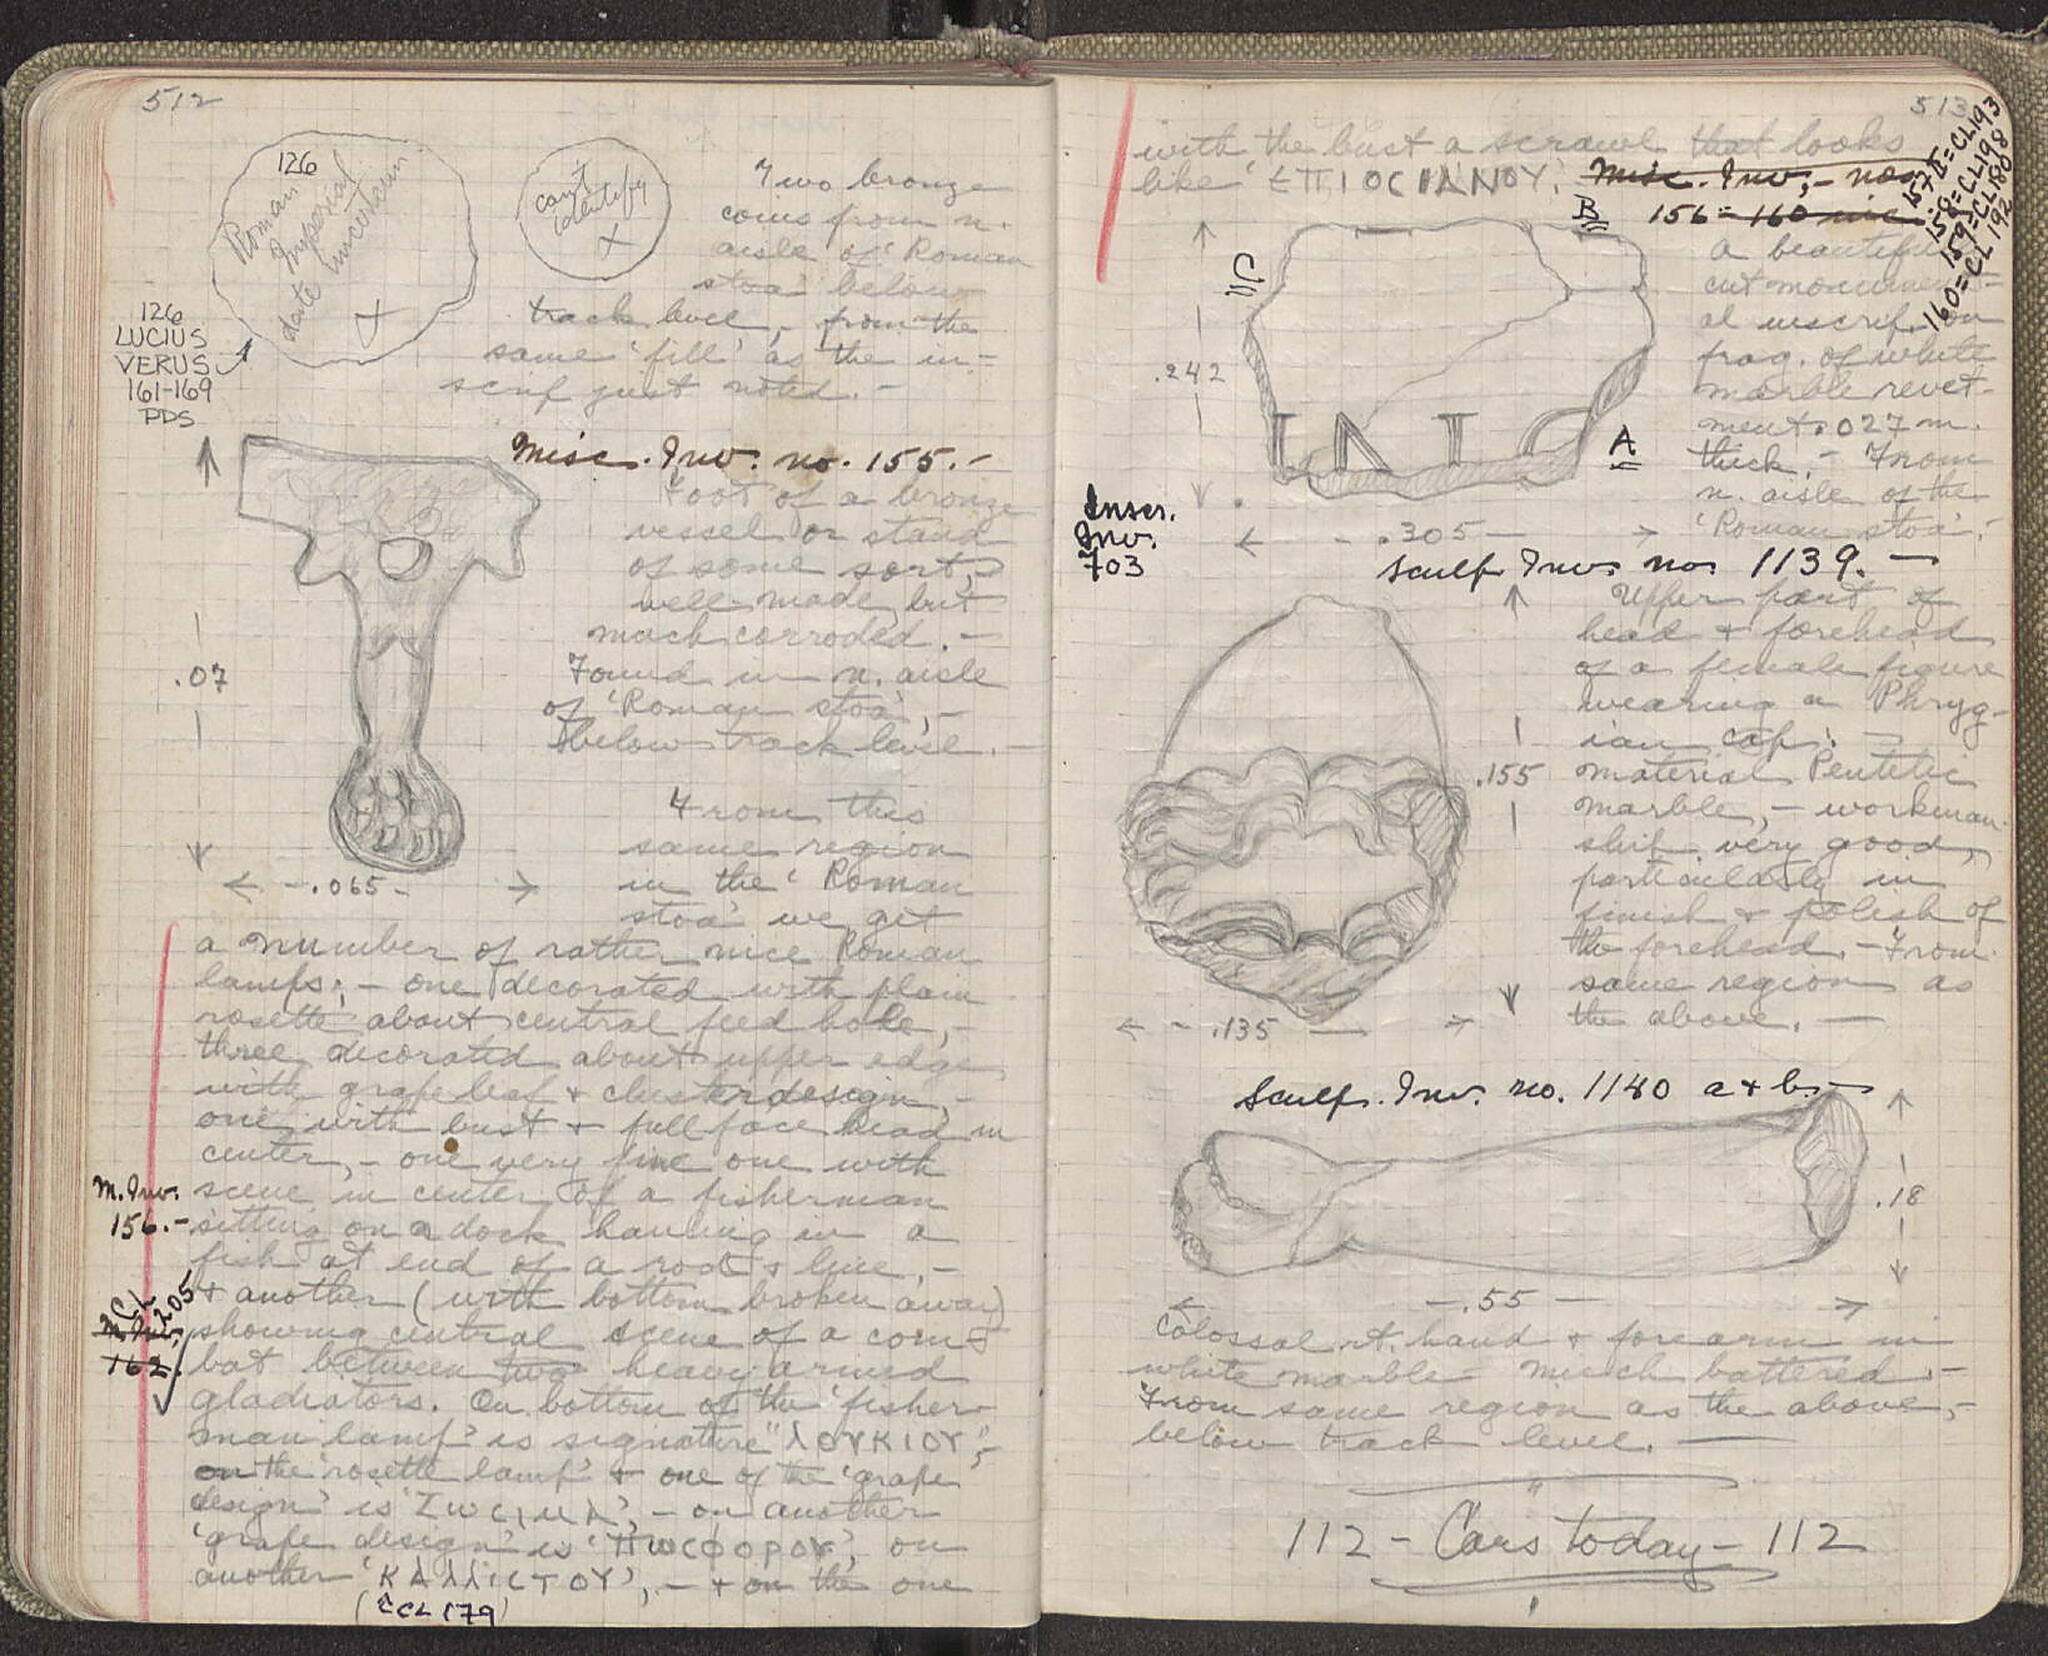 512
126
Roman
Imperial
date uncertain
X
can't
identify
X
126
LUCIUS
VERUS
161-169
PDS
Two bronze
coins from n.
aisle of 'Roman
stoa' below
track level, - from the
same 'fill' as the in-
scrip just noted. -
Misc. Inv. no. 155. -
Foot of a bronze
vessel or stand
of some sort, -
well made, but
much corroded. -
Found in n. aisle
of 'Roman stoa', -
below track level. -
.07
← - .065 - →
From this
same region
in the 'Roman
stoa' we get
a number of rather nice Roman
lamps: - one decorated with plain
rosette about central feed hole, -
three decorated about upper edge
with grape leaf + cluster design, -
one with bust + full face head in
center, - one very fine one with
M. Inv.
156. -
scene in center of a fisherman
sitting on a dock hauling in a
fish at end of a rod + line, -
+ another (with bottom broken away)
CL
205
M. Inv.
162.
showing central scene of a com-
bat between two heavy armed
gladiators. On bottom of the 'fisher-
man lamp' is signature "ΛΟΥΚΙΟΥ", -
on the 'rosette lamp' + one of the 'grape
design' is 'ΣWCIMA', - on another
'grape design' is 'ΠWCΦΟΡΟΥ', on
another 'ΚΑΛΛΙCΤΟΥ', - + on the one
(CL 179)
513
with the bust a scrawl that looks
like 'ΕΠΙΟCΙΑΝΟΥ'. Misc. Inv. - nos
156 = 160 inc
157 = CL 193
158 = CL 198
159 = CL 180
160 = CL 192
B
C
A
.242
INIO
← - .305 - →
Inscr.
Inv.
703
A beautiful
cut monument-
al inscrip. on
frag. of white
marble revet-
ment .027 m.
thick. - From
n. aisle of the
'Roman stoa'. -
Sculp. Inv. no. 1139. -
Upper part of
head + forehead
of a female figure
wearing a Phryg-
ian cap. -
material Pentelic
marble, - workman-
ship very good,
particularly in
finish + polish of
the forehead. - From
same region as
the above. -
.155
← - .135 - →
Sculp. Inv. no. 1140 a + b. -
.18
← - .55 - →
Colossal rt. hand + forearm in
white marble - much battered. -
From same region as the above, -
below track level. -
112 - Cars today - 112